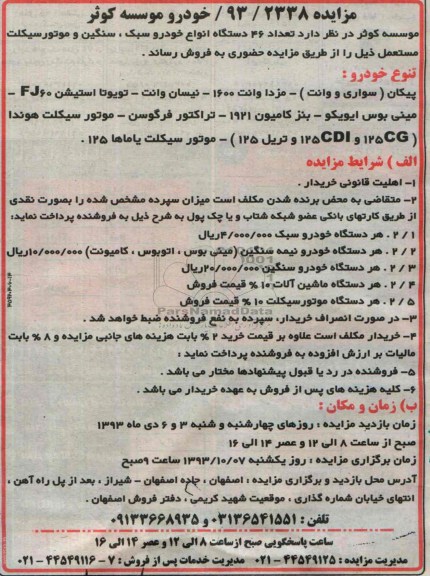 مزایده ۲۳۳۸ / ۹۳ / خودرو موسسه کوثر
موسسه کوثر در نظر دارد تعداد ۴۶ دستگاه انواع خودرو سبک ، سنگین و موتورسیکلت
مستعمل ذیل را از طریق مزایده حضوری به فروش رساند .
تنوع خودرو :
پیکان ( سواری و وانت ) - مزدا وانت ۱۶۰۰ - نیسان وانت - تویوتا استیشن FJ۶۰ -
مینی بوس ایویکو - بنز کامیون ۱۹۲۱ - تراکتور فرگوسن - موتور سیکلت هوندا
( ۱۲۵CG و ۱۲۵CDI و تریل ۱۲۵ ) - موتور سیکلت یاماها ۱۲۵ .
الف ) شرایط مزایده
۱- اهلیت قانونی خریدار .
۲- متقاضی به محض برنده شدن مکلف است میزان سپرده مشخص شده را بصورت نقدی
از طریق کارتهای بانکی عضو شبکه شتاب و یا چک پول به شرح ذیل به فروشنده پرداخت نماید:
۲ / ۱ . هر دستگاه خودرو سبک ۴/۰۰۰/۰۰۰ریال
۲ / ۲ . هر دستگاه خودرو نیمه سنگین (مینی بوس ، اتوبوس ، کامیونت) ۱۰/۰۰۰/۰۰۰ریال
۲ / ۳ . هر دستگاه خودرو سنگین ۲۰/۰۰۰/۰۰۰ریال
۲ / ۴ . هر دستگاه ماشین آلات ۱۰ % قیمت فروش
۲ / ۵ . هر دستگاه موتورسیکلت ۱۰ % قیمت فروش
ParsNamadData
۳- در صورت انصراف خریدار، سپرده به نفع فروشنده ضبط خواهد شد .
۴- خریدار مکلف است علاوه بر قیمت خرید ۲ % بابت هزینه های جانبی مزایده و ۸ % بابت
مالیات بر ارزش افزوده به فروشنده پرداخت نماید :
۵- فروشنده در رد یا قبول پیشنهادها مختار می باشد .
۶- کلیه هزینه های پس از فروش به عهده خریدار می باشد .
ب) زمان و مکان :
زمان بازدید مزایده : روزهای چهارشنبه و شنبه ۳ و ۶ دی ماه ۱۳۹۳
صبح از ساعت ۸ الی ۱۲ و عصر ۱۴ الی ۱۶
زمان برگزاری مزایده : روز یکشنبه ۱۳۹۳/۱۰/۰۷ ساعت ۹صبح
آدرس محل بازدید و برگزاری مزایده : اصفهان ، جاده اصفهان - شیراز ، بعد از پل راه آهن ،
انتهای خیابان شماره گذاری ، موقعیت شهید کریمی ، دفتر فروش اصفهان .
تلفن : ۰۳۱۳۶۵۴۱۵۵۱ و ۰۹۱۳۳۶۶۸۹۳۵
ساعت پاسخگویی صبح ازساعت ۸ الی ۱۲ و عصر ۱۴ الی ۱۶
مدیریت مزایده : ۴۴۵۴۹۱۲۵ - ۰۲۱ مدیریت خدمات پس از فروش : ۷ - ۴۴۵۴۹۱۱۶ - ۰۲۱